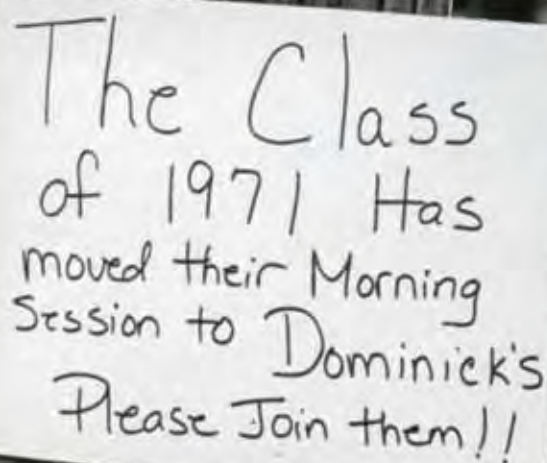 The Class
of 1971 Has
moved their Morning
Session to Dominick's
Please Join them!!